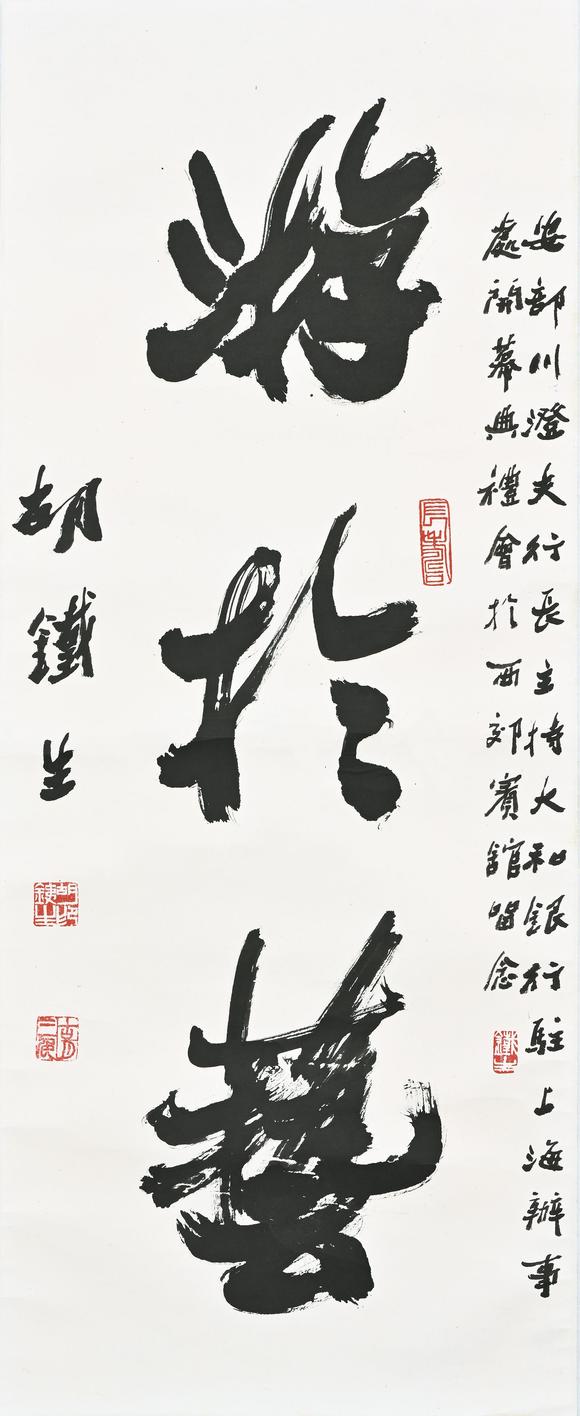 安部川澄夫行長主持大和銀行駐上海辦事
處開幕典禮會於西郊賓館留念
鐵生
游於藝
胡鐵生